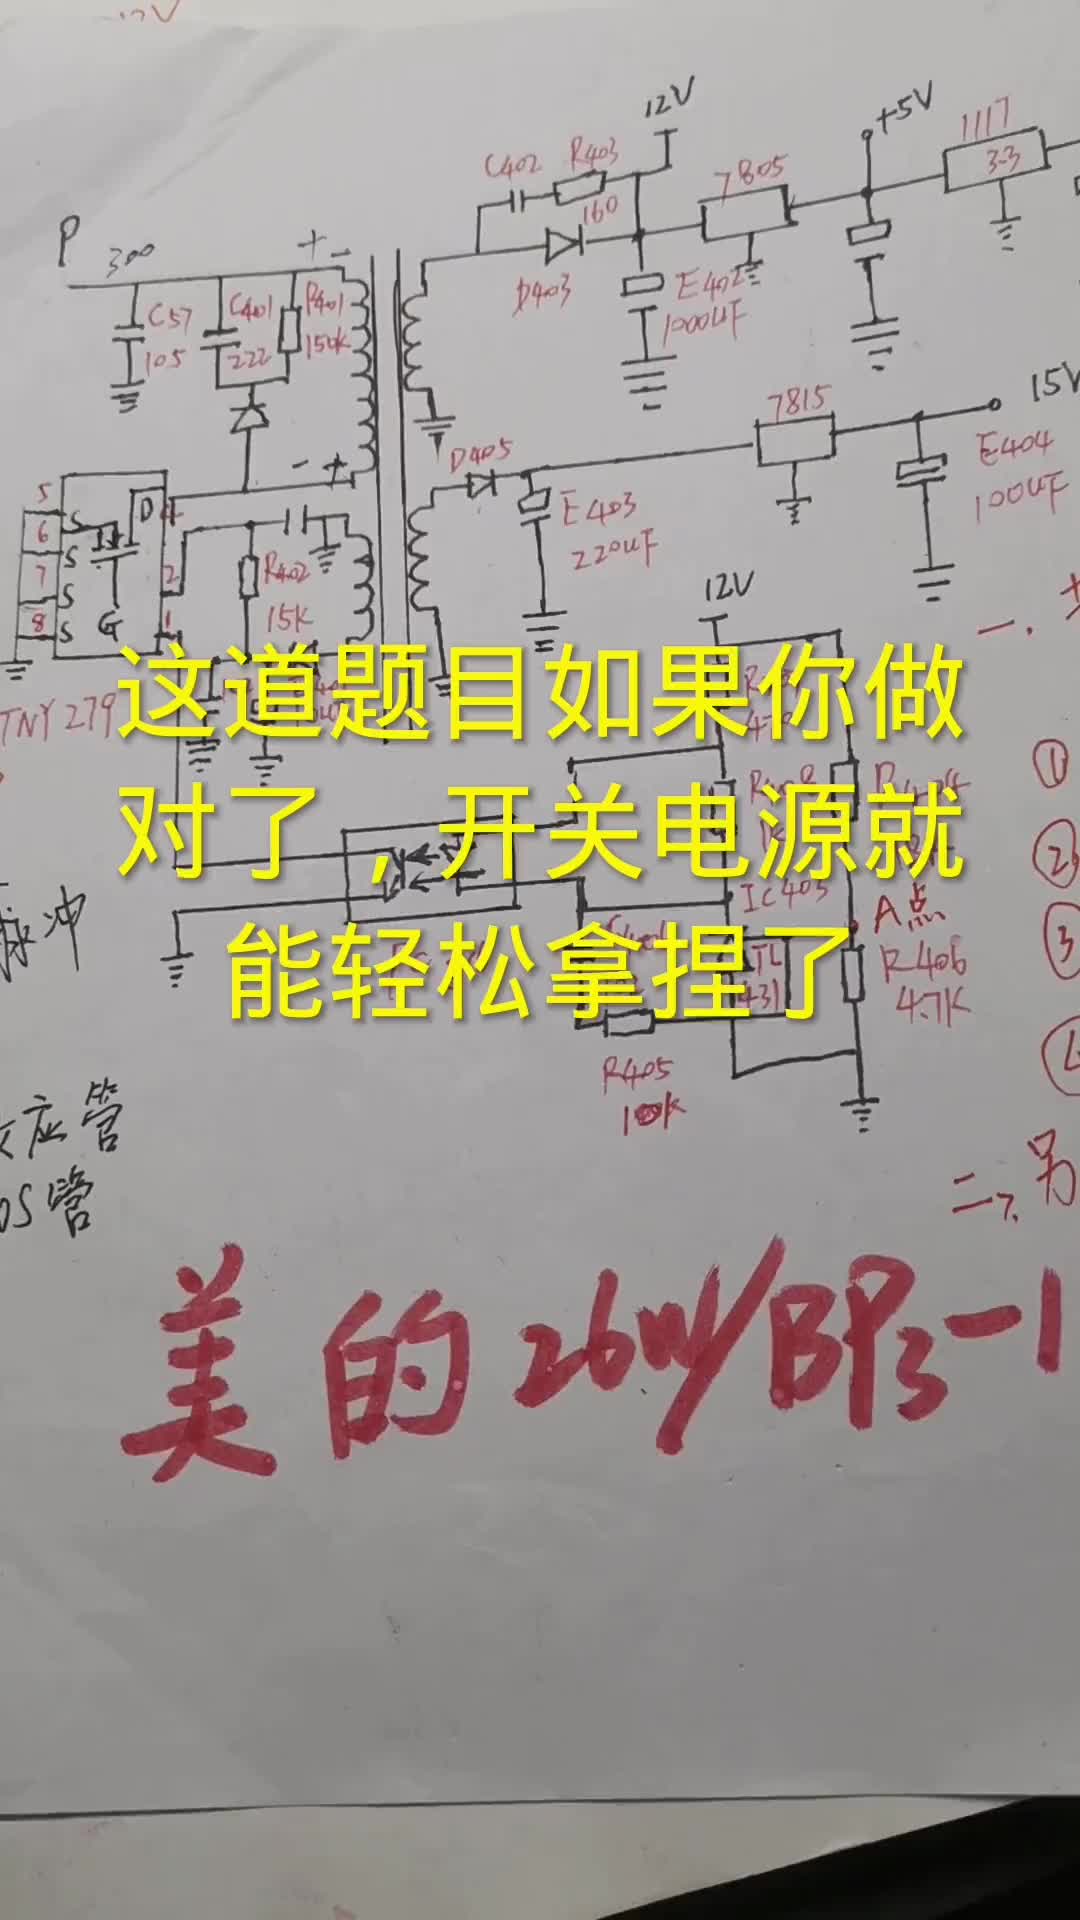 12V
+5V
1117
3.3
C402
R403
160
7805
P
300
+
-
D403
E402
1000uF
C57
105
C401
222
R401
150K
-
+
7815
15V
D405
E403
220uF
E404
100uF
5
6
7
8
S
S
S
S
D
G
4
2
1
R402
15K
12V
一、
TNY279
这道题目如果你做
对了，开关电源就
能轻松拿捏了
①
②
③
IC403
A点
TL
431
R406
4.7K
脉冲
R405
应管
OS管
二、另
美的26W/BP3-1